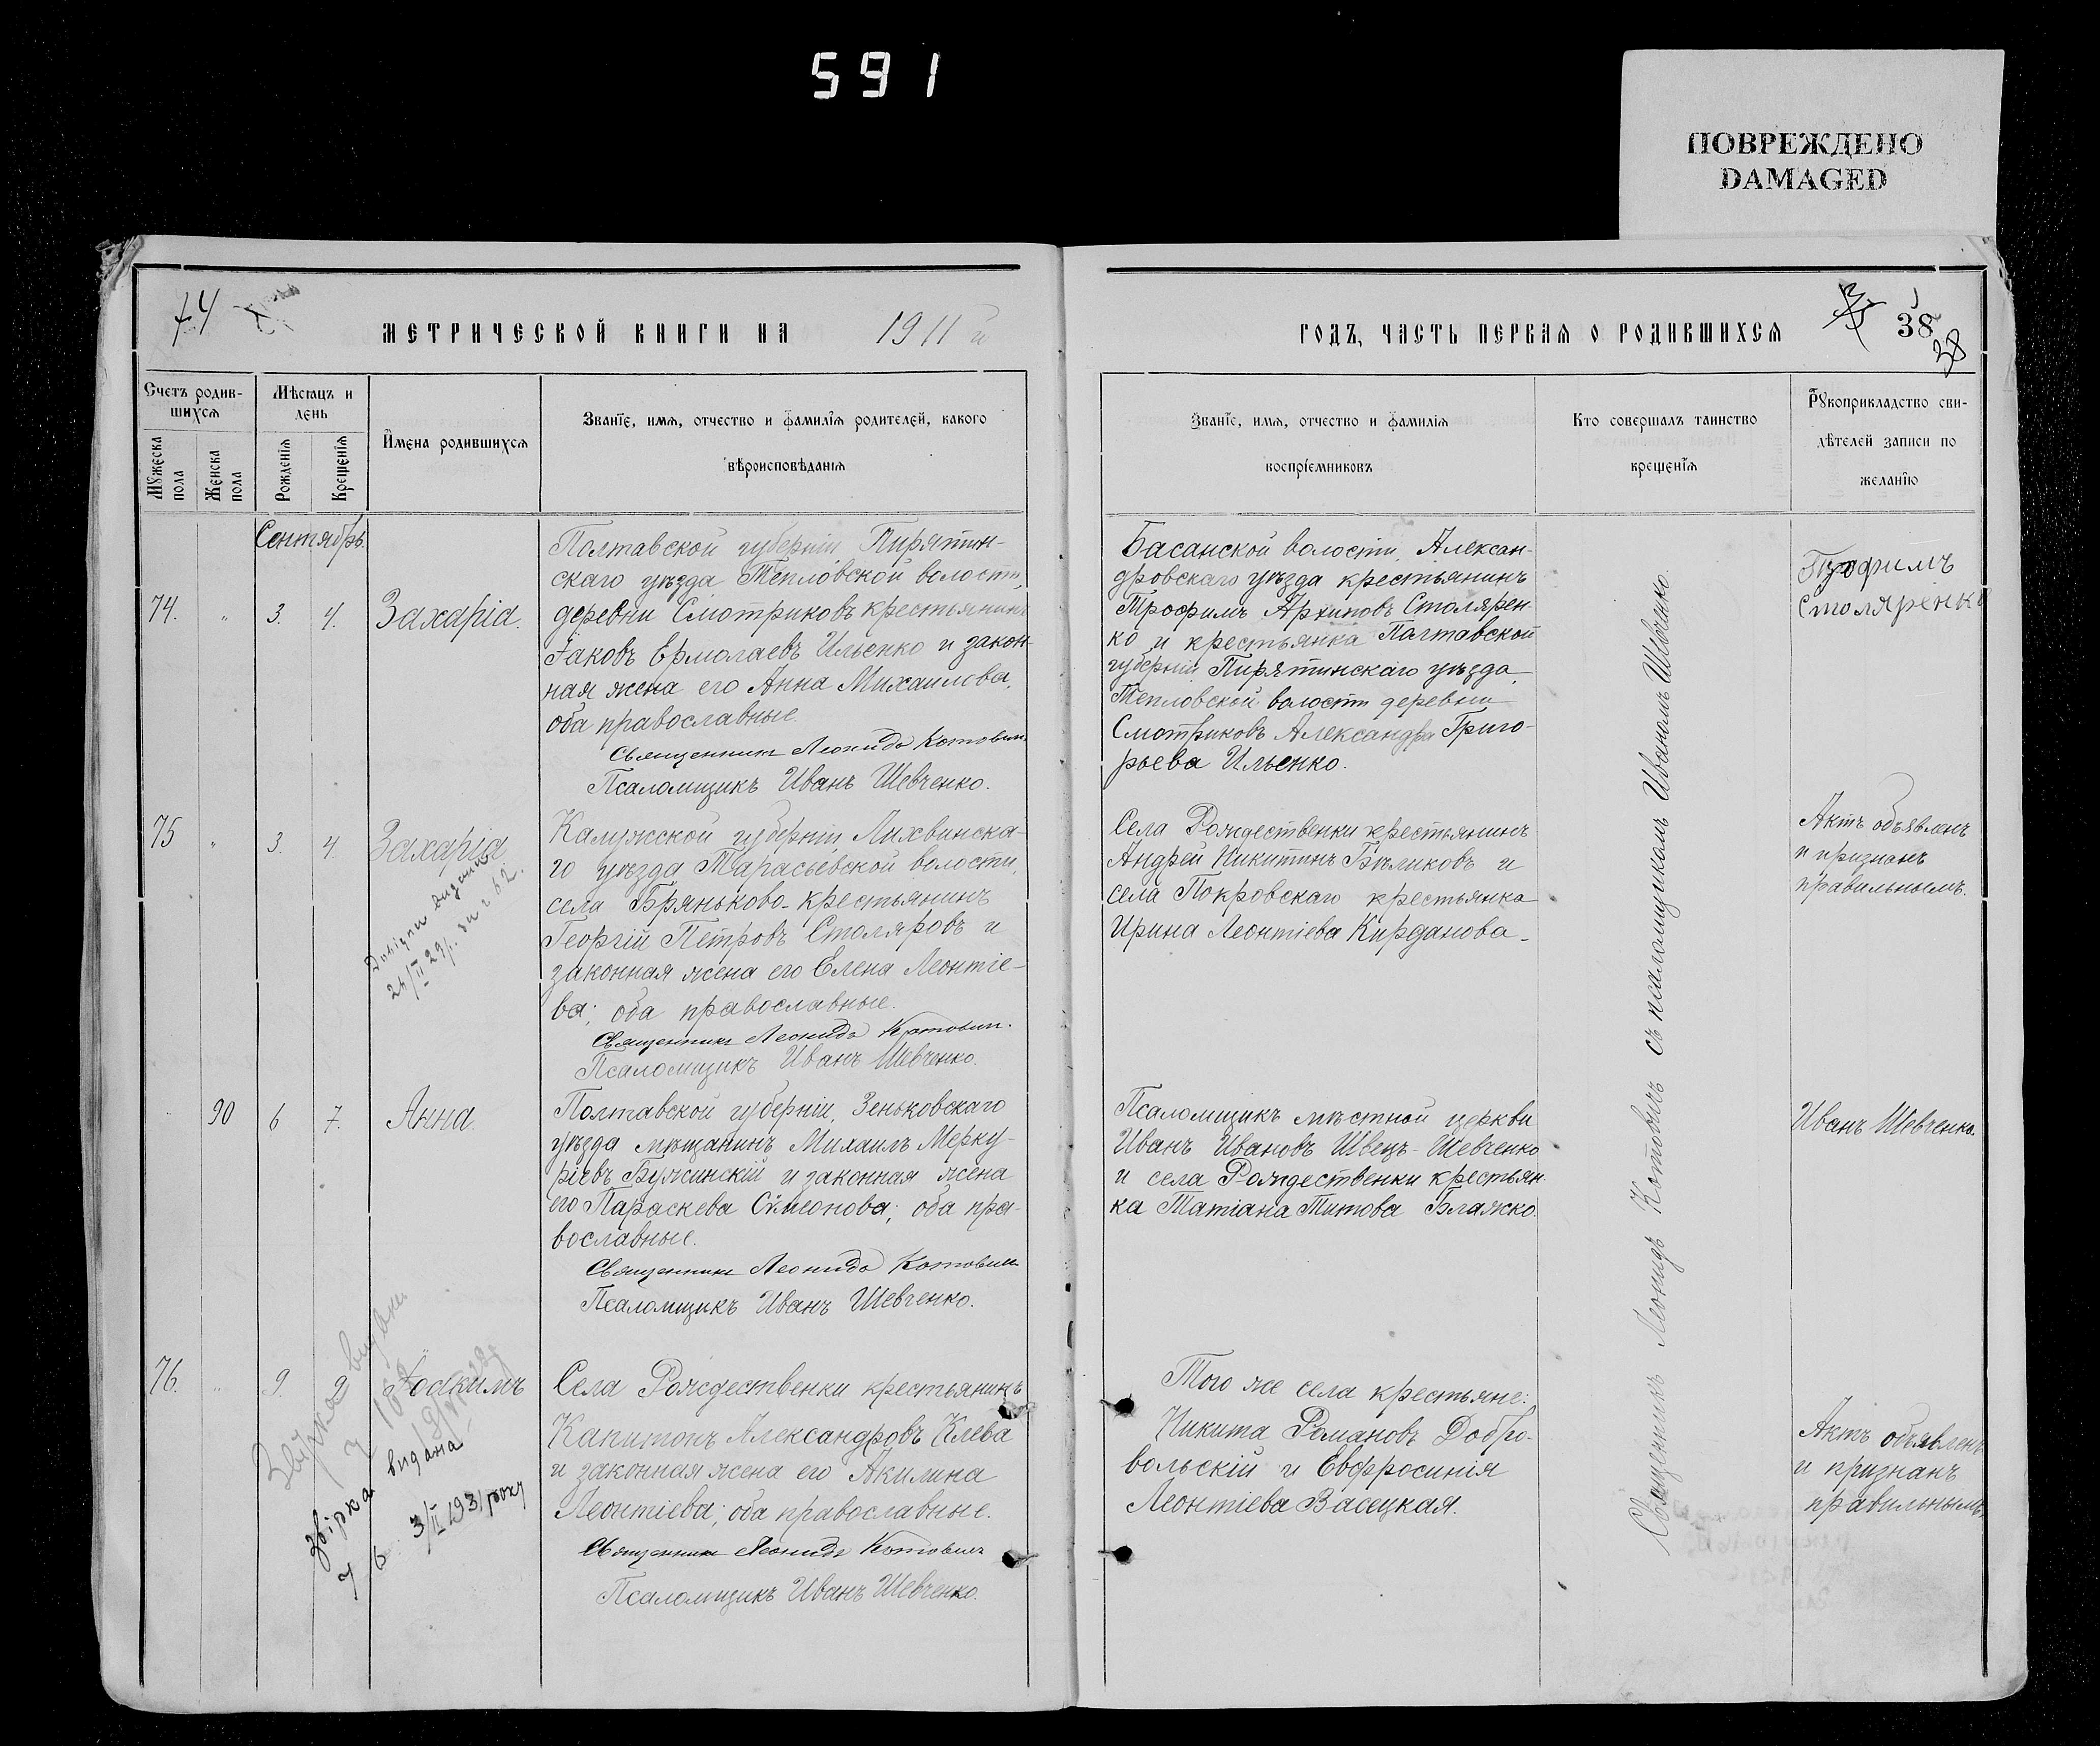 591
ПОВРЕЖДЕНО
DAMAGED
74
МЕТРИЧЕСКОЙ КНИГИ НА 1911 й
Счетъ родив-
шихся
Мѣсяцъ и
день
Мужеска
пола
Женска
пола
Рожденїя
Крещенїя
Имена родившихся
Званїе, имя, отчество и фамилїя родителей, какого
вѣроисповѣданїя
Сентябрь.
74. " 3. 4. Захарія.
Полтавской губерніи Пирятин-
скаго уѣзда Тепловской волости,
деревни Смотриковъ крестьянинъ
Іаковъ Ермолаевъ Ильенко и закон-
ная жена его Анна Михаилова,
оба православные.
Священникъ Леонидъ Котовичъ
Псаломщикъ Иванъ Шевченко.
75 " 3. 4. Захарія
Калужской губерніи, Лихвинска-
го уѣзда Тарасьевской волости,
села Бряньково крестьянинъ
Георгій Петровъ Столяровъ и
законная жена его Елена Леонтіе-
ва; оба православные.
Священникъ Леонидъ Котовичъ.
Псаломщикъ Иванъ Шевченко.
90 6 7. Анна.
Полтавской губерніи, Зеньковскаго
уѣзда мѣщанинъ Михаилъ Мерку-
ріевъ Бужинскій и законная жена
его Параскева Сѵмеонова; оба пра-
вославные.
Священникъ Леонидъ Котовичъ
Псаломщикъ Иванъ Шевченко.
76. " 9. Іоакимъ
видана
звірка
3/II 1931 року
Села Рождественки крестьянинъ
Капитонъ Александровъ Клева
и законная жена его Акилина
Леонтіева; оба православные.
Священникъ Леонидъ Котовичъ
Псаломщикъ Иванъ Шевченко.
ГОДЪ, ЧАСТЬ ПЕРВАЯ О РОДИВШИХСЯ
38
38
Званїе, имя, отчество и фамилїя
воспрїемниковъ
Кто совершалъ таинство
крещенїя
Рукоприкладство сви-
дѣтелей записи по
желанїю
Басанской волости, Алексан-
дровскаго уѣзда крестьянинъ
Трофимъ Архиповъ Столярен-
ко и крестьянка Полтавской
губерніи Пирятинскаго уѣзда,
Тепловской волости деревни
Смотриковъ Александра Григо-
рьева Ильенко.
Трофимъ
Столяренко
Села Рождественки крестьянинъ
Андрей Никитинъ Бѣликовъ и
села Покровскаго крестьянка
Ирина Леонтіева Кирданова
Актъ объявленъ
и признанъ
правильнымъ.
Псаломщикъ мѣстной церкви
Иванъ Ивановъ Швецъ-Шевченко
и села Рождественки крестьян-
ка Татіана Титова Блажко.
Иванъ Шевченко.
Того же села крестьяне:
Никита Романовъ Добро-
вольскій и Евфросинія
Леонтіева Васецкая.
Актъ объявленъ
и признанъ
правильнымъ.
Священникъ Леонидъ Котовичъ съ псаломщикомъ Иваномъ Шевченко.